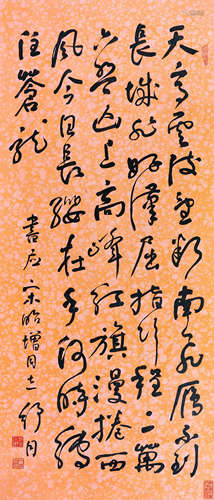 天高雲淡望斷南飛雁不到
長城非好漢屈指行程二萬
六盤山上高峰紅旗漫捲西
風今日長纓在手何時縛
住蒼龍
書應宋昭增同志舒同